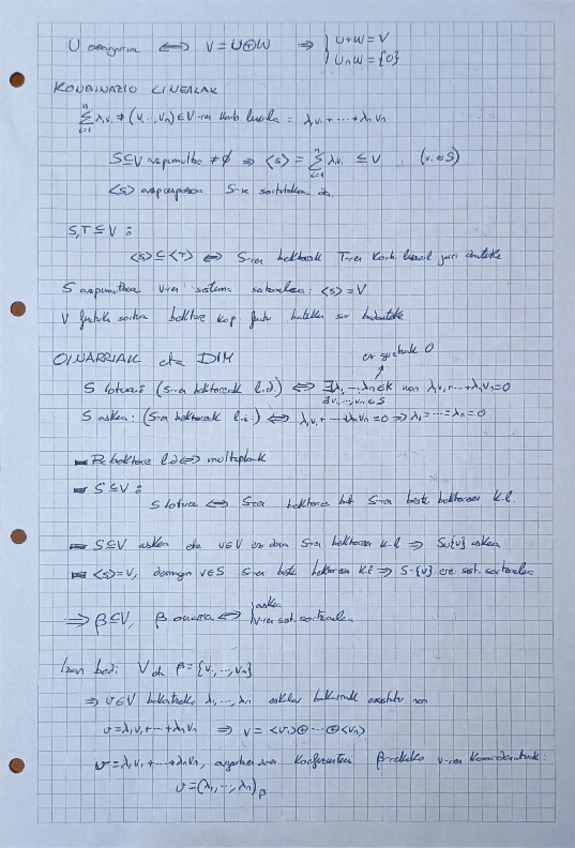 U osagarria ⟺ V = U⊕W ⇒ { U+W = V
U∩W = {0}
KONBINAZIO LINEALAK
∑ᵢ₌₁ⁿ λᵢvᵢ → (v₁,…,vₙ) ∈ V-ren konb lineala = λ₁v₁ + ⋯ + λₙvₙ
S⊆V azpimultzo ≠ ∅ ⇒ <S> = ∑ᵢ₌₁ⁿ λᵢvᵢ ≤ V (vᵢ ∈ S)
<S> azpiespazioa S-k sortutakoa da.
S,T ⊆ V :
<S> ⊆ <T> ⟺ S-ren bektoreak T-ren konb. lineal jarri daitezke
S azpimultzoa V-ren sistema sortzailea: <S> = V
V finituki sortua bektore kop finitu batekin sor badaiteke
OINARRIAK eta DIM
ez guztiak 0
S lotua: (S-ren bektoreak l.d) ⟺ ∃λ₁,⋯,λₙ ∈ K non λ₁v₁+⋯+λₙvₙ = 0
∃v₁,⋯,vₙ ∈ S
S askea: (S-ren bektoreak l.i) ⟺ λ₁v₁ + ⋯ + λₙvₙ = 0 ⇒ λ₁ = ⋯ = λₙ = 0
- Bi bektore l.d ⟺ multiploak
- S⊆V :
S lotua ⟺ S-ren bektore bat S-ren beste bektoreen k.l.
- S⊆V askea eta v∈V ez dena S-ren bektoreen k.l ⇒ S∪{v} askea
- <S> = V, v∈S S-ren beste bektoreen k.l ⇒ S-{v} ere sist. sortzailea
⇒ β⊆V, β oinarria ⟺ { askea
V-ren sist. sortzailea
Izan bedi V eta β = {v₁,…,vₙ}
⇒ v∈V bakoitzeko λ₁,…,λₙ eskalar bakarrak existitu non
v = λ₁v₁ + ⋯ + λₙvₙ ⇒ V = <v₁>⊕⋯⊕<vₙ>
v = λ₁v₁ + ⋯ + λₙvₙ, koefizienteei β-rekiko v-ren koordenatuak:
v = (λ₁,⋯,λₙ)β